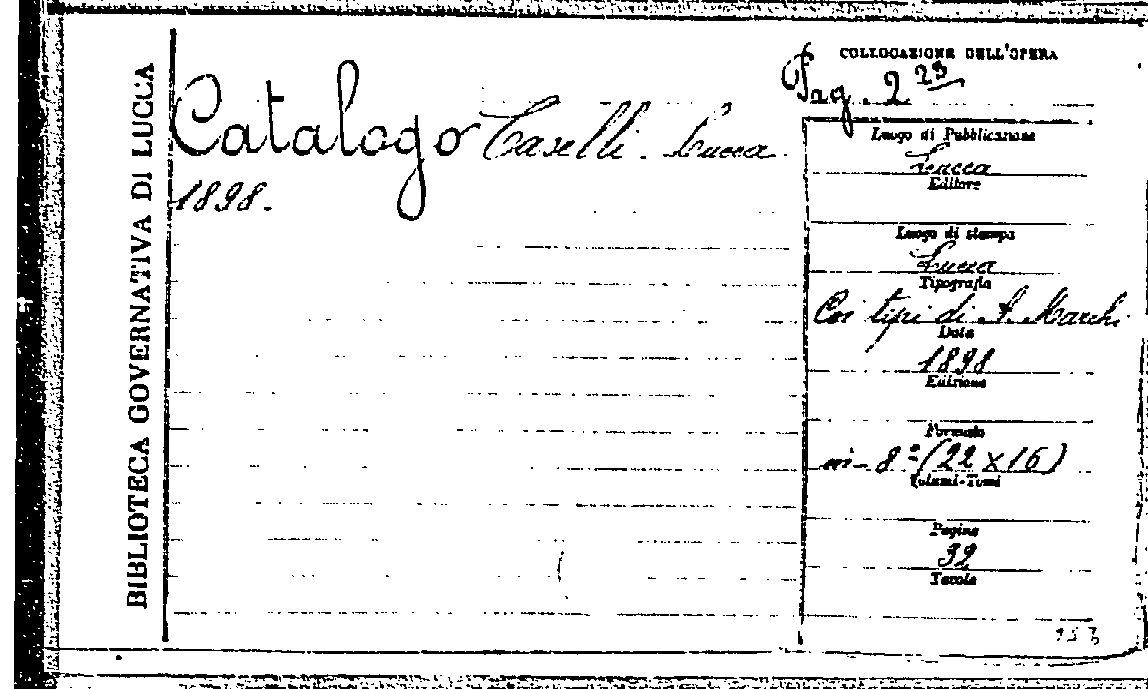 BIBLIOTECA GOVERNATIVA DI LUCCA
Catalogo Caselli. Lucca
1898.
COLLOCAZIONE DELL'OPERA
Pag. 2 23
Luogo di Pubblicazione
Lucca
Editore
Luogo di stampa
Lucca
Tipografia
Coi tipi di A. Marchi
Data
1898
Edizione
Formato
in-8º (22 x 16)
Volumi-Tomi
Pagine
32
Tavole